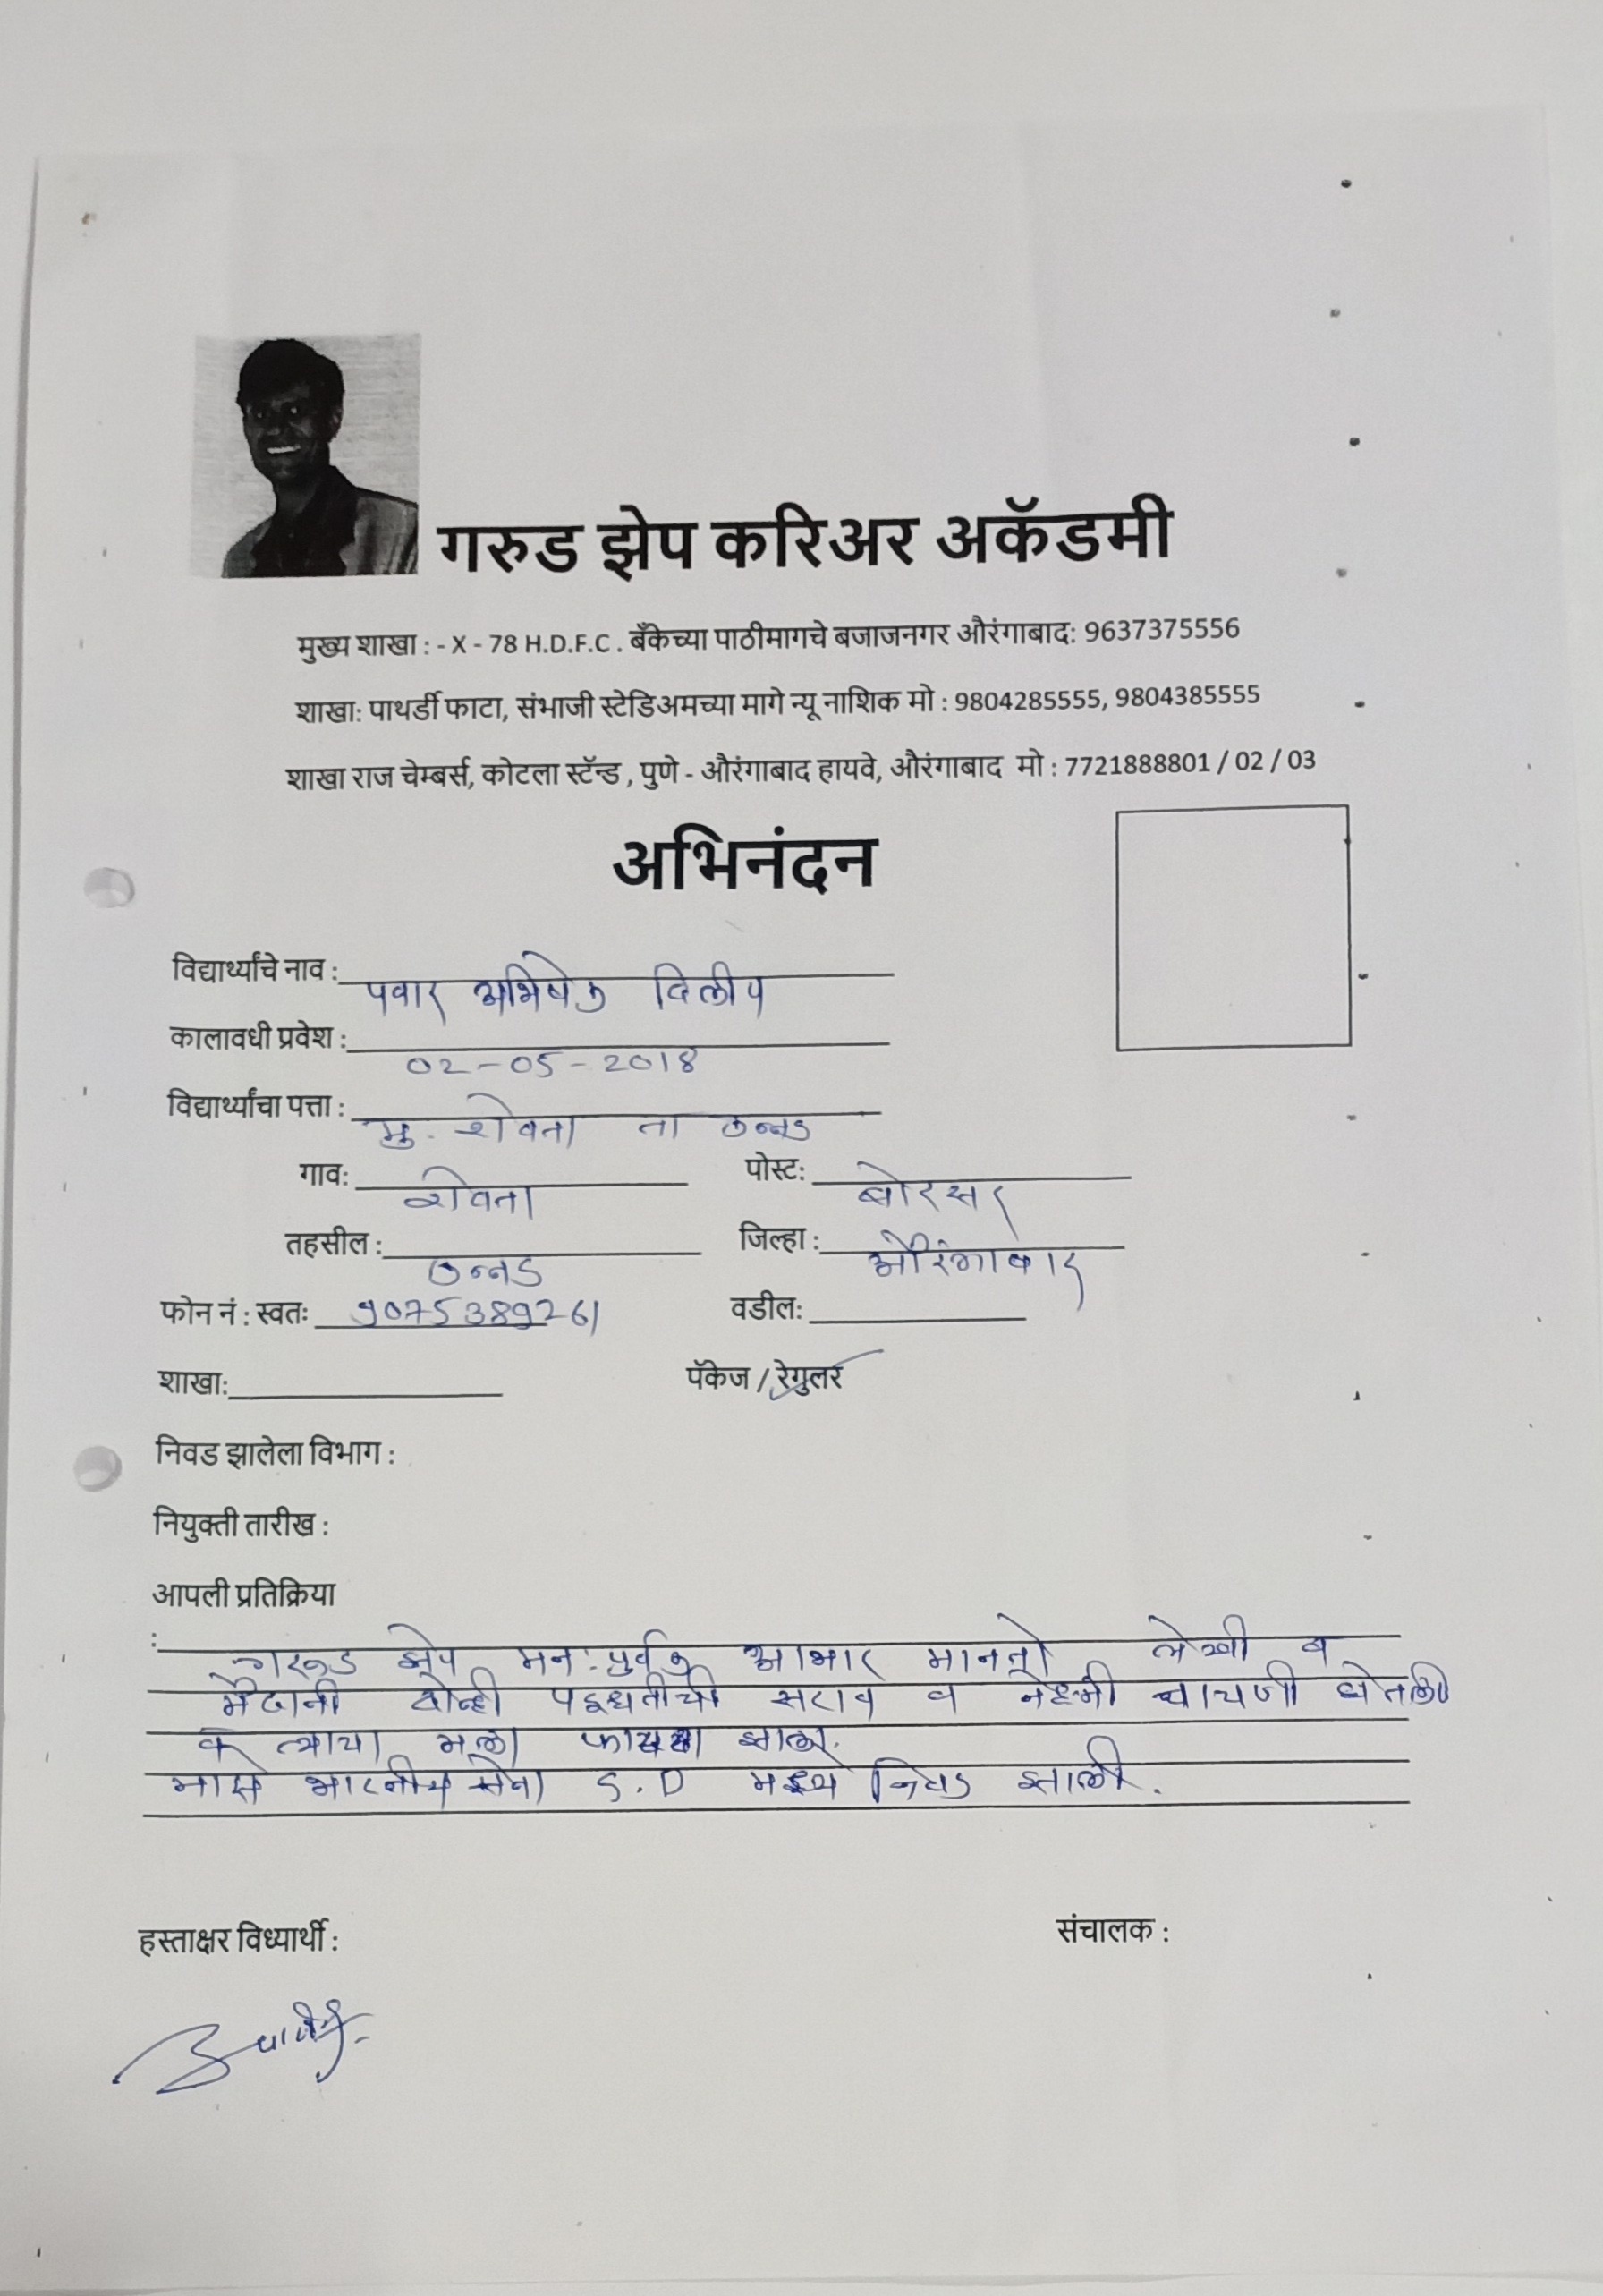 गरुड झेप करिअर अकॅडमी
मुख्य शाखा : - X - 78 H.D.F.C . बँकेच्या पाठीमागचे बजाजनगर औरंगाबाद: 9637375556
शाखा: पाथर्डी फाटा, संभाजी स्टेडिअमच्या मागे न्यू नाशिक मो : 9804285555, 9804385555
शाखा राज चेम्बर्स, कोटला स्टॅन्ड , पुणे - औरंगाबाद हायवे, औरंगाबाद मो : 7721888801 / 02 / 03
अभिनंदन
विद्यार्थ्यांचे नाव : पवार अभिषेक दिलीप
कालावधी प्रवेश : 02-05-2018
विद्यार्थ्यांचा पत्ता : मु. शेवता ता कन्नड
गाव: शेवता पोस्ट: बोरसर
तहसील : कन्नड जिल्हा : औरंगाबाद
फोन नं : स्वतः 9075389261 वडील:
शाखा: पॅकेज / रेगुलर
निवड झालेला विभाग :
नियुक्ती तारीख :
आपली प्रतिक्रिया
: गरूड झेप मन:पुर्वक आभार मानतो लेखी व
मैदानी दोन्ही पद्धतीची सराव व चाचणी घेतली
व त्याचा मला फायदा झाला.
माझे भारतीय सेना G.D मध्ये निवड झाली.
हस्ताक्षर विध्यार्थी : संचालक :